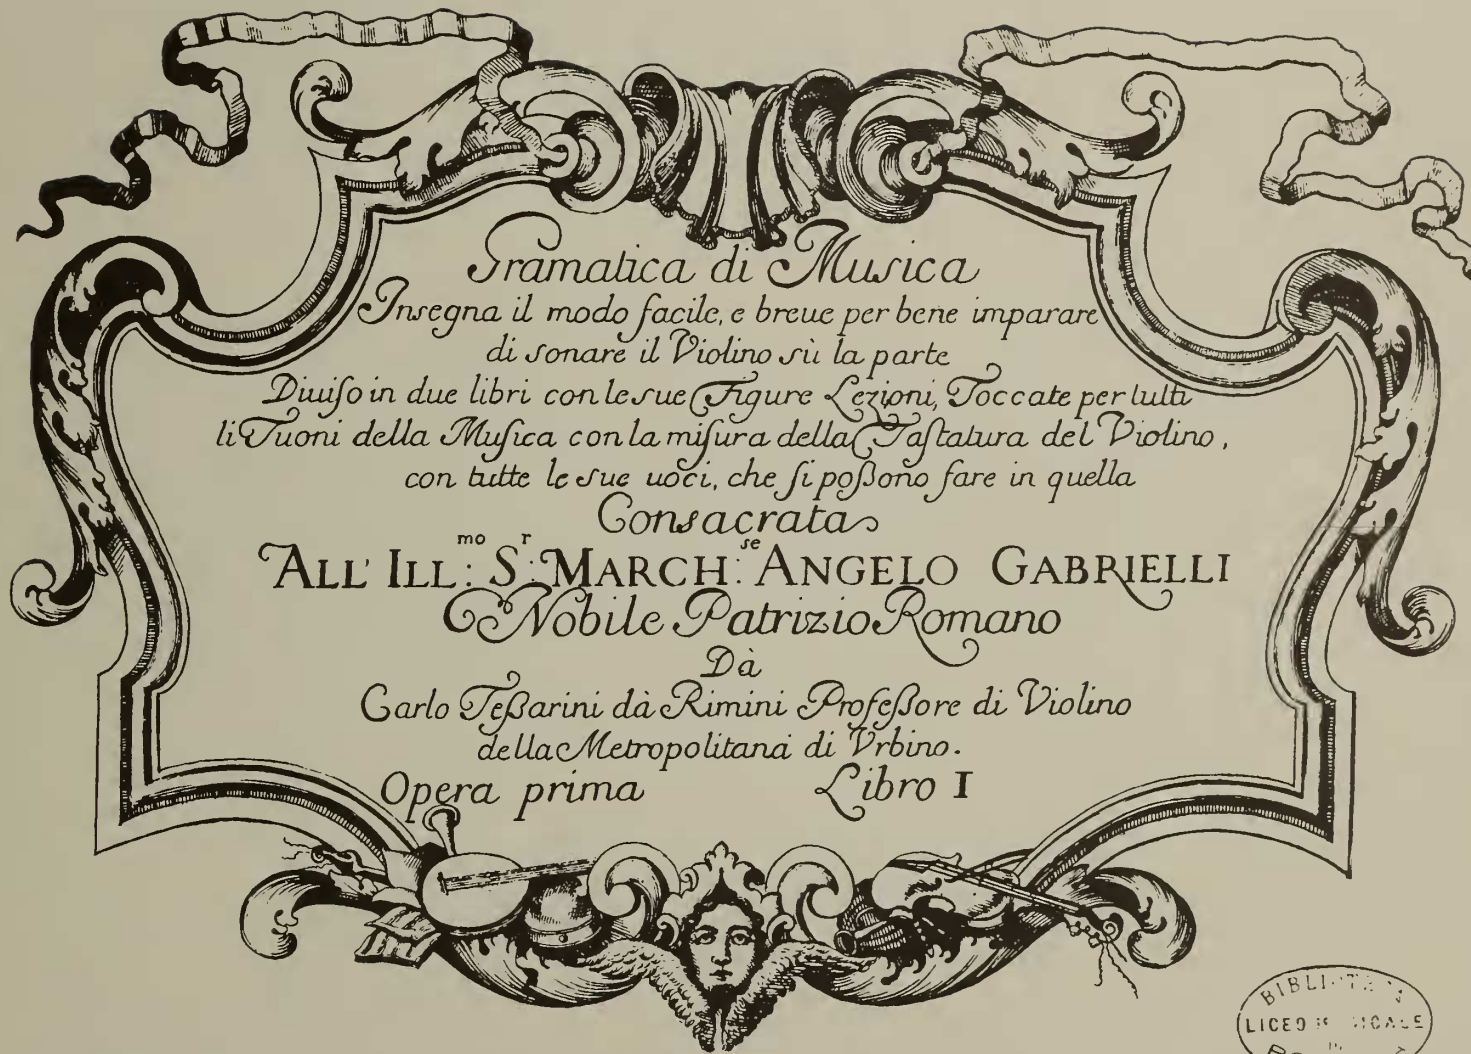 Gramatica di Musica
Insegna il modo facile, e breue per bene imparare
di sonare il Violino sù la parte
Diuiſo in due libri con le sue Figure Lezioni, Toccate per tutti
li Tuoni della Muſica con la miſura della Taſtatura del Violino,
con tutte le sue uoci, che ſi poſsono fare in quella
Consacrata
ALL' ILL:mo S:r MARCH:se ANGELO GABRIELLI
Nobile Patrizio Romano
Dà
Carlo Teſsarini dà Rimini Profeſsore di Violino
della Metropolitana di Vrbino.
Opera prima Libro I
LICEO